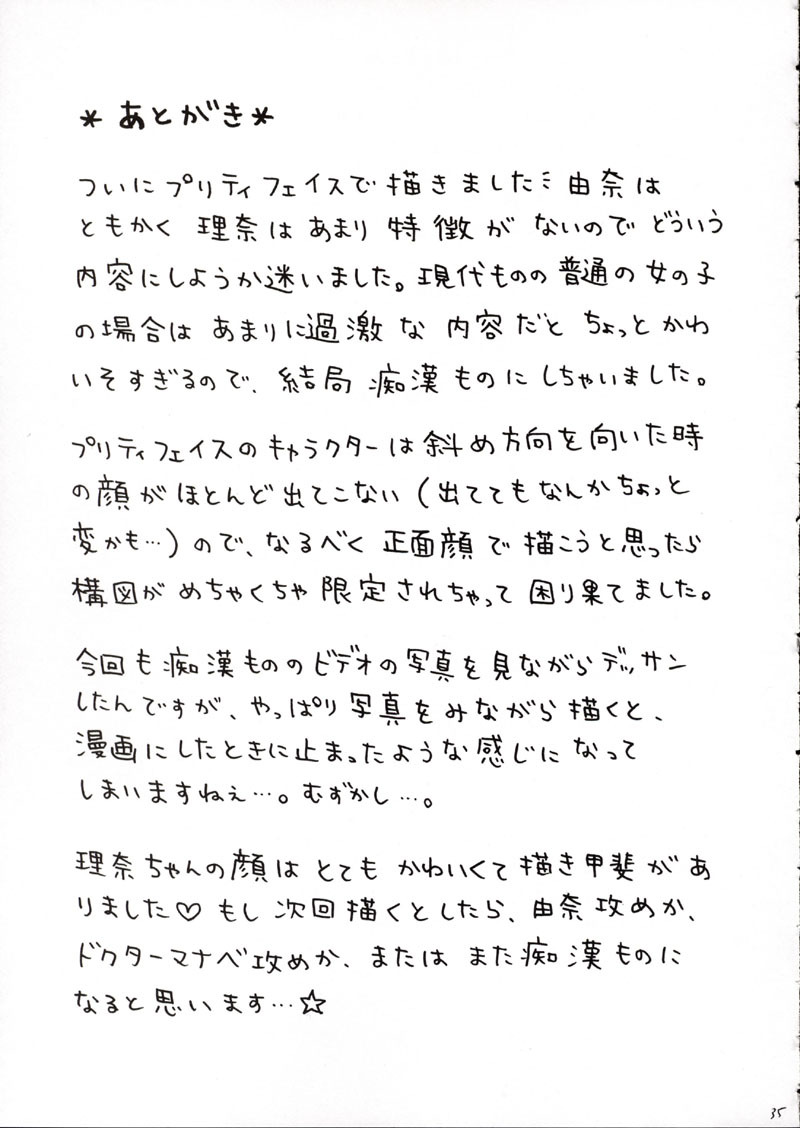 *あとがき*
ついにプリティフェイスで描きました⁝ 由奈は
ともかく 理奈は あまり 特徴が ないので どういう
内容にしようか迷いました。現代ものの 普通の 女の子
の場合は あまりに過激な 内容だと ちょっとかわ
いそすぎるので、結局 痴漢 ものに しちゃいました。
プリティフェイスのキャラクターは斜め方向を向いた時
の顔が ほとんど出てこない(出てても なんかちょっと
変かも…)ので、なるべく 正面顔で 描こうと思ったら
構図が めちゃくちゃ 限定されちゃって 困り果てました。
今回も 痴漢もののビデオの写真を見ながらデッサン
したんですが、やっぱり写真をみながら描くと、
漫画にしたときに止まったような感じになって
しまいますねぇ…。むずかし…。
理奈ちゃんの顔は とても かわいくて描き甲斐が あ
りました♡ もし 次回描くとしたら、由奈攻めか、
ドクターマナベ攻めか、または また 痴漢ものに
なると思います…☆
35